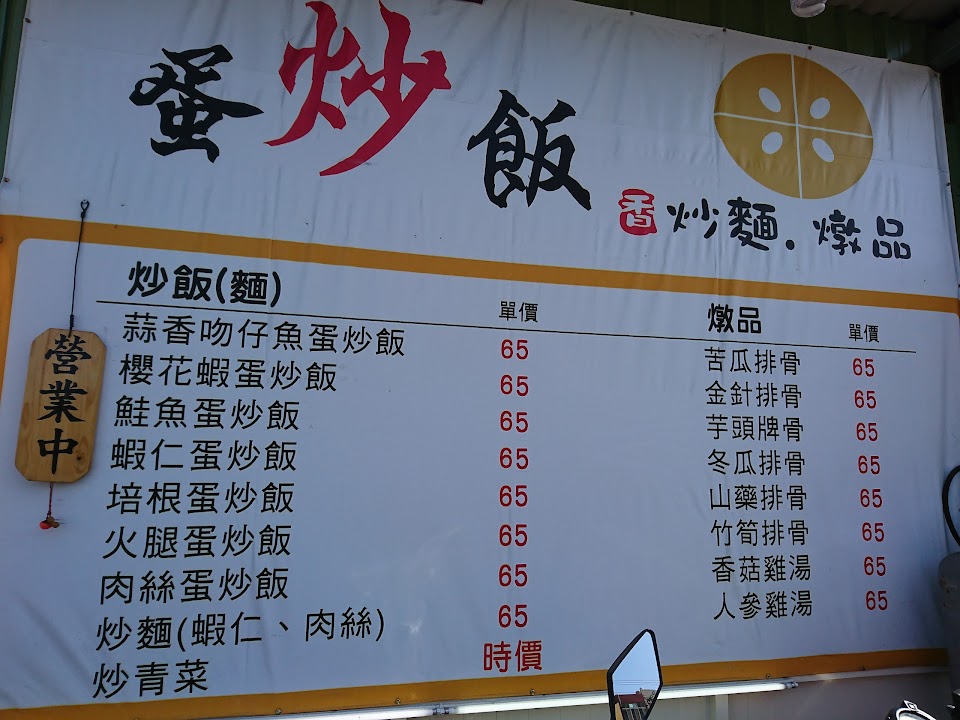 蛋炒飯
香炒麵.燉品
營業中
炒飯(麵) 單價
蒜香吻仔魚蛋炒飯 65
櫻花蝦蛋炒飯 65
鮭魚蛋炒飯 65
蝦仁蛋炒飯 65
培根蛋炒飯 65
火腿蛋炒飯 65
肉絲蛋炒飯 65
炒麵(蝦仁、肉絲) 65
炒青菜 時價
燉品 單價
苦瓜排骨 65
金針排骨 65
芋頭牌骨 65
冬瓜排骨 65
山藥排骨 65
竹筍排骨 65
香菇雞湯 65
人參雞湯 65